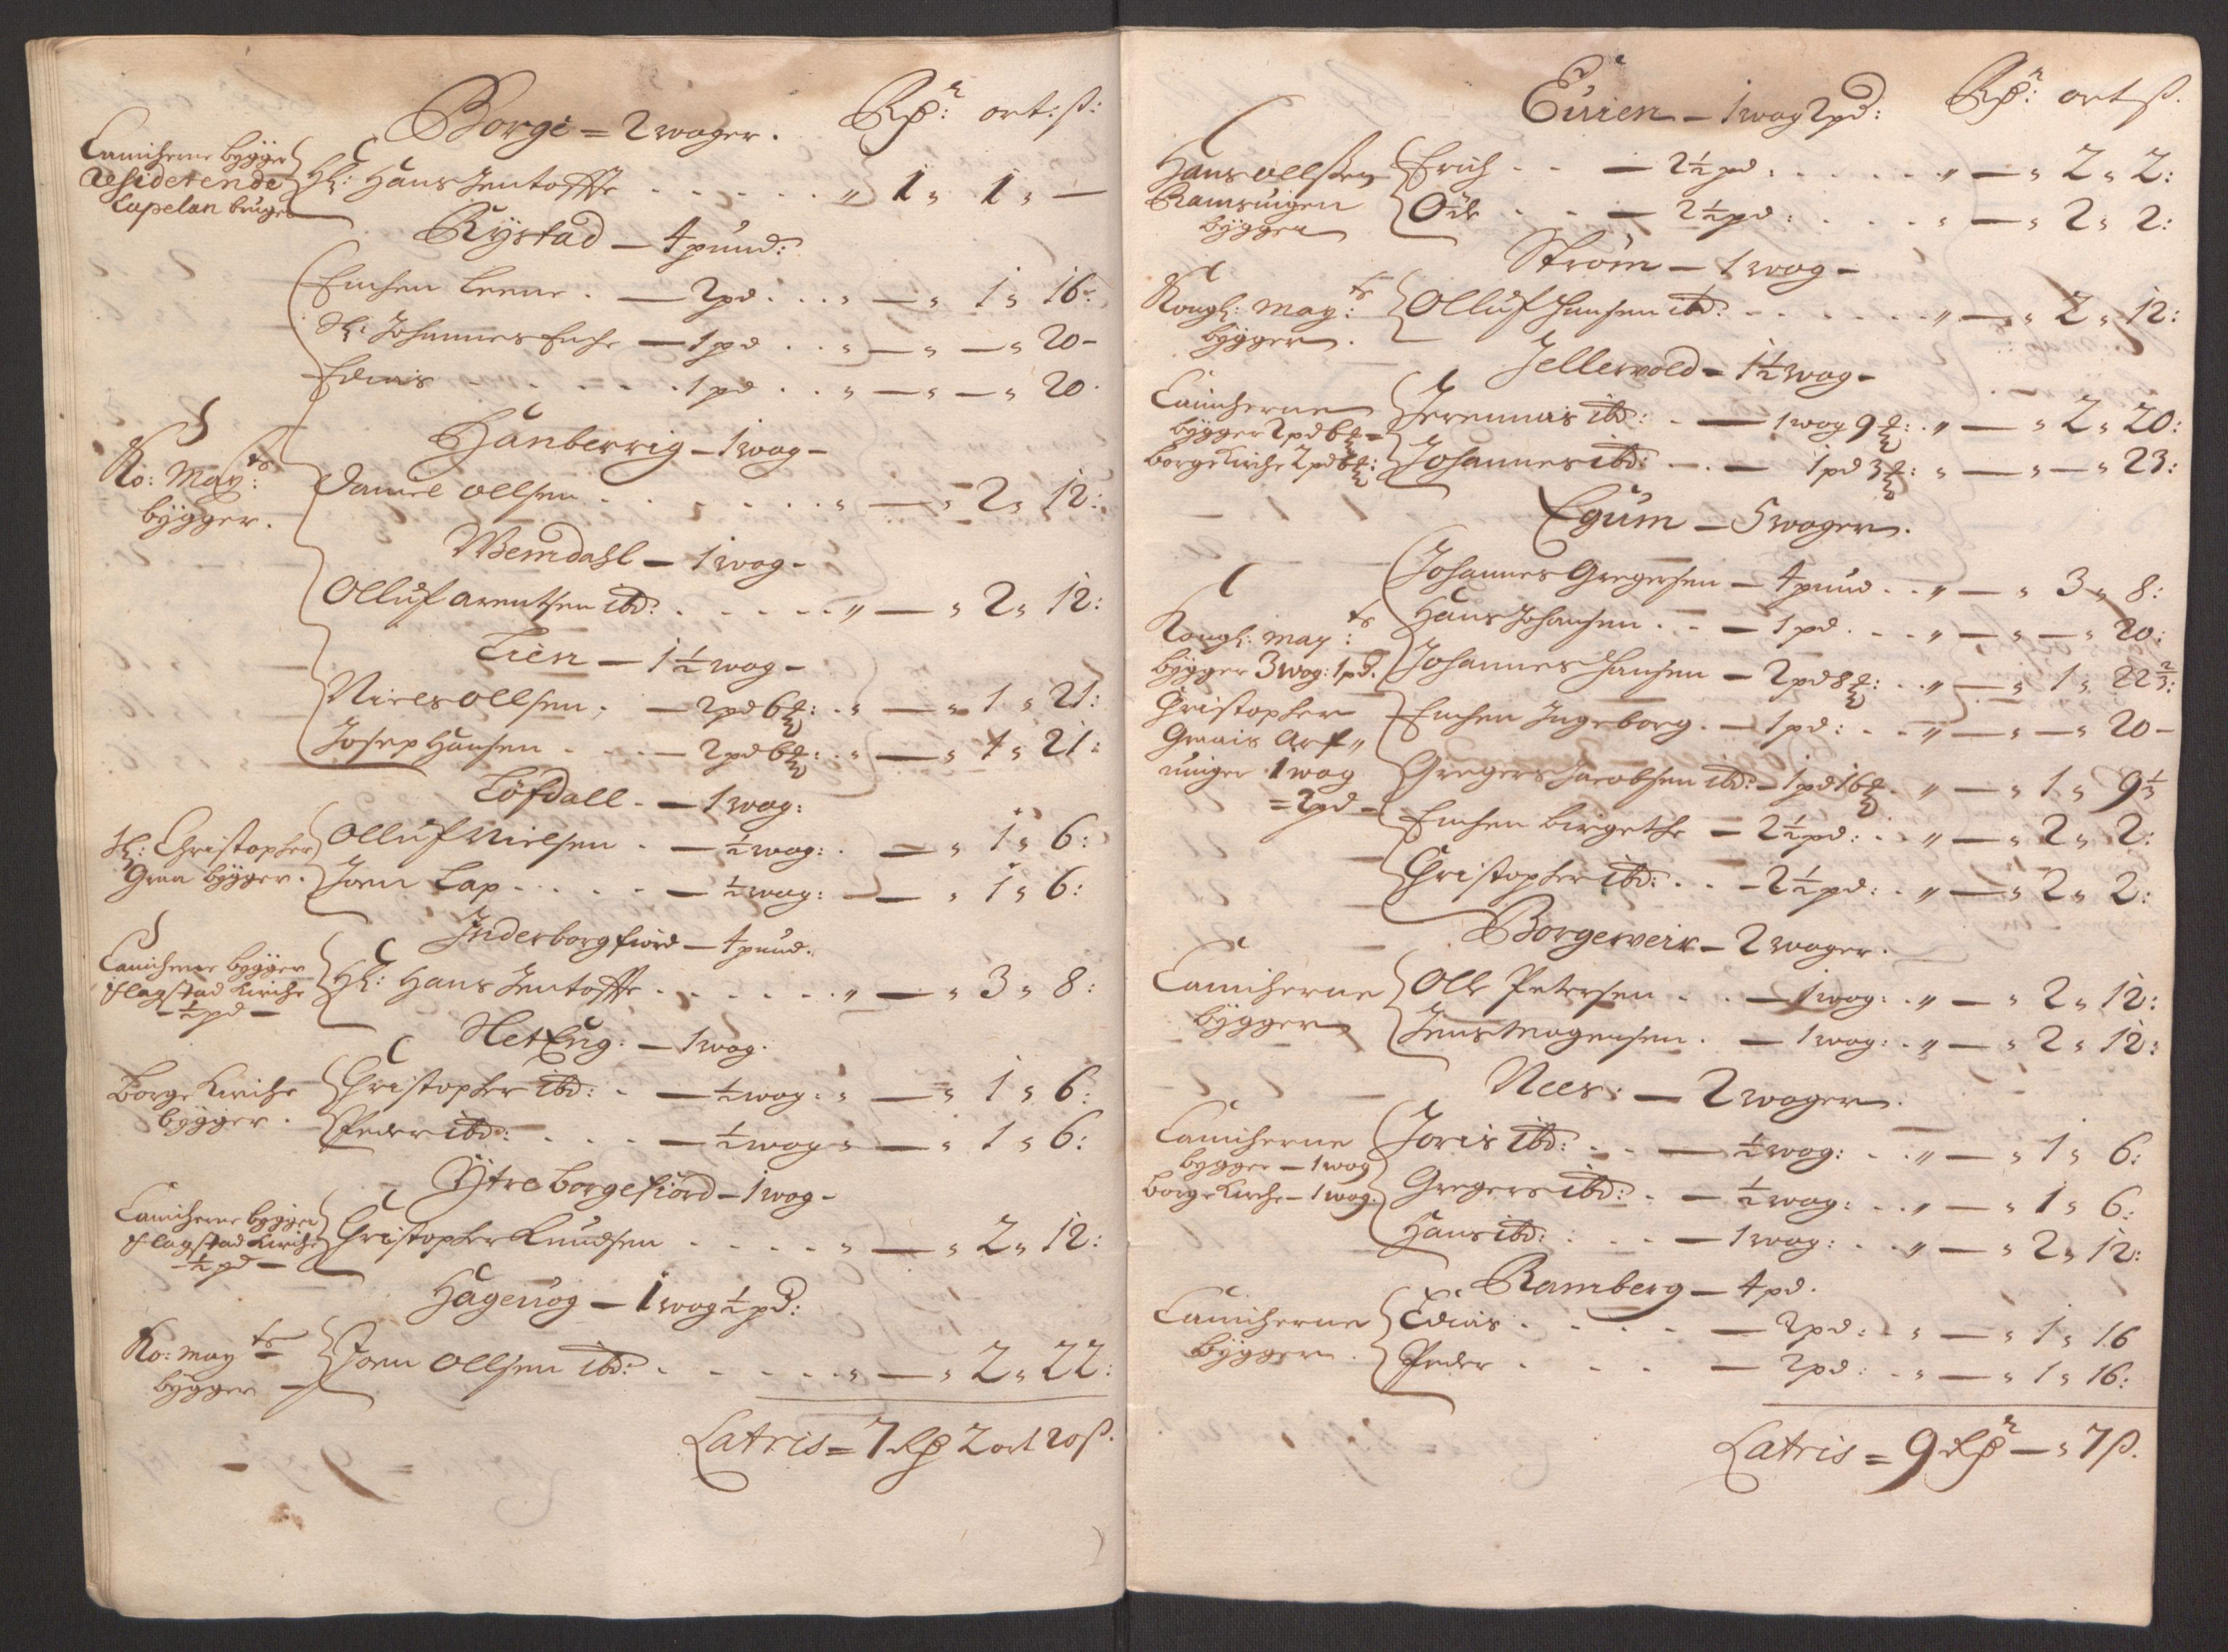 Borge = 2 woger. Rdr: ort: ß:
Canicherne bygger
Residerende
Capelan bruger
Hr: Hans Jentofft . . . . . „ 1 „ 1 „ —
Rystad — 4 pund:
Enchen Leene . — 2 pd . . . „ — „ 1 „ 16:
Sl: Johannes Enche — 1 pd . . „ — „ — „ 20 -
Edvais . . . . . 1 pd . . „ — „ — „ 20 ·
Hanberrig — 1 wog -
Ko: May:ts
bygger.
Daniel Ollsen . . . . . . „ — „ 2 „ 12:
Wemdahl — 1 wog -
Olluf Arentsen ibd: . . . . . „ — „ 2 „ 12:
Lien — 1 ½ wog -
Niels Ollsen . — 2 pd 6 ℔: . „ — „ 1 „ 21:
Josep Hansen . . . — 2 pd 6 ℔: . „ — „ 1 „ 21:
Löfdall . — 1 wog:
Hr: Christopher
Graa bygger.
Olluf Nielsen . — ½ wog: . — „ 1 „ 6:
Joen Lap . . . . . — ½ wog: — „ 1 „ 6:
Inderborgfiord — 4 pund.
Canicherne bygger
Flagstad Kirche
— ½ pd —
Hr: Hans Jentofft . . . . . . „ — „ 3 „ 8:
Heteug . — 1 wog.
Borge Kirche
bygger.
Christopher ibd: . — ½ wog: „ — „ 1 „ 6:
Peder ibd: . . . — ½ wog „ — „ 1 „ 6:
Ÿtre borgefiord — 1 wog -
Canicherne bygger
Flagstad Kirche
— ½ pd —
Christopher Knudsen . . . . . „ — „ 2 „ 12:
Hagenog — 1 wog ½ pd:
Ko: Mayts
bygger —
Joen Ollsen ibd: . . . . . „ — „ 2 „ 22:
Latris = 7 Rd 2 ort 20 ß.
Euien — 1 wog 2 pd: Rdr: ort ß.
Hans Ollsen
Ramsuigen
bygger
Erich . . — 2 ½ pd . . . . . . „ — „ 2 „ 2:
Ole . . — 2 ½ pd: . . . . „ — „ 2 „ 2:
Ström — 1 wog -
Kongl: May:ts
bygger.
Olluf Hansen ibd: . . . . . . „ — „ 2 „ 12:
Jellervold — 1 ½ wog -
Canicherne
bygger 2 pd 6 ℔ =
Borge Kirche 2 pd 6 ℔:
Jeremias ibd: . — 1 wog 9 ℔: . „ — „ 2 „ 20:
Johannes ibd: — . — 1 pd 3 ℔: „ — „ — „ 23:
Egum — 5 woger.
Kongl: May:ts
bygger 3 wog: 1 pd.
Christopher
Graais Arf„
uinger 1 wog
= 2 pd —
Johannes Gregersen — 4 pund . . „ — „ 3 „ 8:
Hans Johansen . . — 1 pd . . . „ — „ — „ 20:
Johannes Hansen — 2 pd 8 ℔: . . „ — „ 1 „ 22 ⅔:
Enchen Ingeborg . — 1 pd: . . „ — „ — „ 20 -
Gregers Jacobsen ibd: — 1 pd 16 ℔ . „ — „ 1 „ 9 ⅓
Enchen Birgethe — 2 ½ pd: . . „ — „ 2 „ 2:
Christopher ibd: . . — 2 ½ pd: . „ — „ 2 „ 2:
Borgerveir — 2 woger.
Canicherne
bygger
Olle Petersen . . — 1 wog: . „ — „ 2 „ 12:
Jens Mogensen . — 1 wog: . „ — „ 2 „ 12:
Nees: — 2 woger.
Canicherne
bygger — 1 wog
Borge Kirche — 1 wog.
Joris ibd: . . — ½ wog: . . „ — „ 1 „ 6:
Gregers ibd: . — ½ wog: . . „ — „ 1 „ 6:
Hans ibd: . . . — 1 wog: . . „ — „ 2 „ 12:
Ramberg — 4 pd.
Canicherne
bygger.
Edvais . . . . — 2 pd: . „ — „ 1 „ 16
Peder . . . — 2 pd: . „ — „ 1 „ 16:
Latris = 9 Rdr — „ 7 ß.